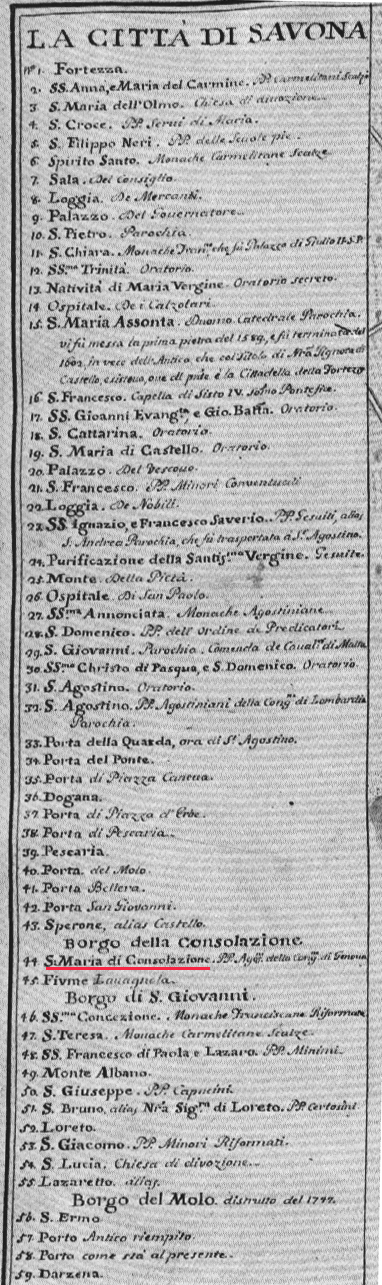 LA CITTÀ DI SAVONA
Nº 1. Fortezza.
2. SS. Anna, e Maria del Carmine. PP. Carmelitani Scalzi
3. S. Maria dell'Olmo. Chiesa di divozione.
4. S. Croce. PP. Servi di Maria.
5. S. Filippo Neri. PP. delle Scuole pie.
6. Spirito Santo. Monache Carmelitane Scalze.
7. Sala. Del Consiglio.
8. Loggia. De Mercanti.
9. Palazzo. Del Governatore.
10. S. Pietro. Parochia.
11. S. Chiara. Monache Fran.ne che fu Palazzo di Giulio II. S. P.
12. SS.ma Trinità. Oratorio.
13. Natività di Maria Vergine. Oratorio secreto.
14. Ospitale. De i Calzolari.
15. S. Maria Assonta. Duomo Catedrale Parochia.
vi fù messa la prima pietra del 1589, e fù terminata del
1602, in vece dell'Antica che col titolo di Nra Signora di
Castello, esisteva, ove di pnte è la Cittadella della Fortezza
16. S. Francesco. Capella di Sisto IV. Somo Pontefice.
17. SS. Gioanni Evang.ta e Gio. Batta. Oratorio.
18. S. Cattarina. Oratorio.
19. S. Maria di Castello. Oratorio.
20. Palazzo. Del Vescovo.
21. S. Francesco. PP. Minori Conventuali
22. Loggia. De Nobili.
23. SS. Ignazio, e Francesco Saverio. PP. Gesuiti, alias
S. Andrea Parochia, che fù trasportata a St. Agostino.
24. Purificazione della Santis.ma Vergine. Gesuite.
25. Monte. Della Pietà.
26. Ospitale. Di San Paolo.
27. SS.ma Annonciata. Monache Agostiniane.
28. S. Domenico. PP. dell'Ordine de Predicatori.
29. S. Giovanni. Parochia. Comenda de Caval.ri di Malta
30. SS.mo Christo di Pasqua, e S. Domenico. Oratorio.
31. S. Agostino. Oratorio.
32. S. Agostino. PP. Agostiniani della Cong.ne di Lombardia
Parochia.
33. Porta della Quarda, ora di St. Agostino.
34. Porta del Ponte.
35. Porta di Piazza Caneva.
36. Dogana.
37. Porta di Piazza d'Erbe.
38. Porta di Pescaria.
39. Pescaria.
40. Porta. del Molo.
41. Porta Bellera.
42. Porta San Giovanni.
43. Sperone, alias Castello.
Borgo della Consolazione.
44. S. Maria di Consolazione. PP. Ag.ni della Cong.ne di Genova
45. Fiume Lavagnola.
Borgo di S. Giovanni.
46. SS.ma Concezione. Monache Franciscane Riformate
47. S. Teresa. Monache Carmelitane Scalze.
48. SS. Francesco di Paola e Lazaro. PP. Minimi.
49. Monte Albano.
50. S. Giuseppe. PP. Capucini.
51. S. Bruno, alias Nra Sig.ra di Loreto. PP. Certosini
52. Loreto.
53. S. Giacomo. PP. Minori Riformati.
54. S. Lucia. Chiesa di divozione.
55. Lazaretto. alias.
Borgo del Molo. distrutto del 1747.
56. S. Ermo
57. Porto Antico riempito.
58. Porto come sta al presente.
59. Darzena.